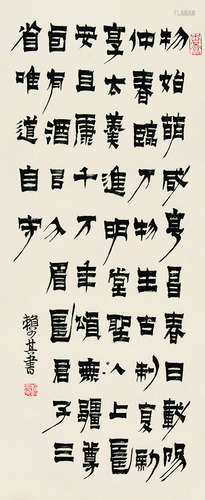 物始萌咸粤昌春日載陽
仲春臨万物生古制
享太羹進明堂聖人上壽
安且康千万年頌無疆尊
自有酒㠯介眉壽君子三
省唯道自守
賴少其書